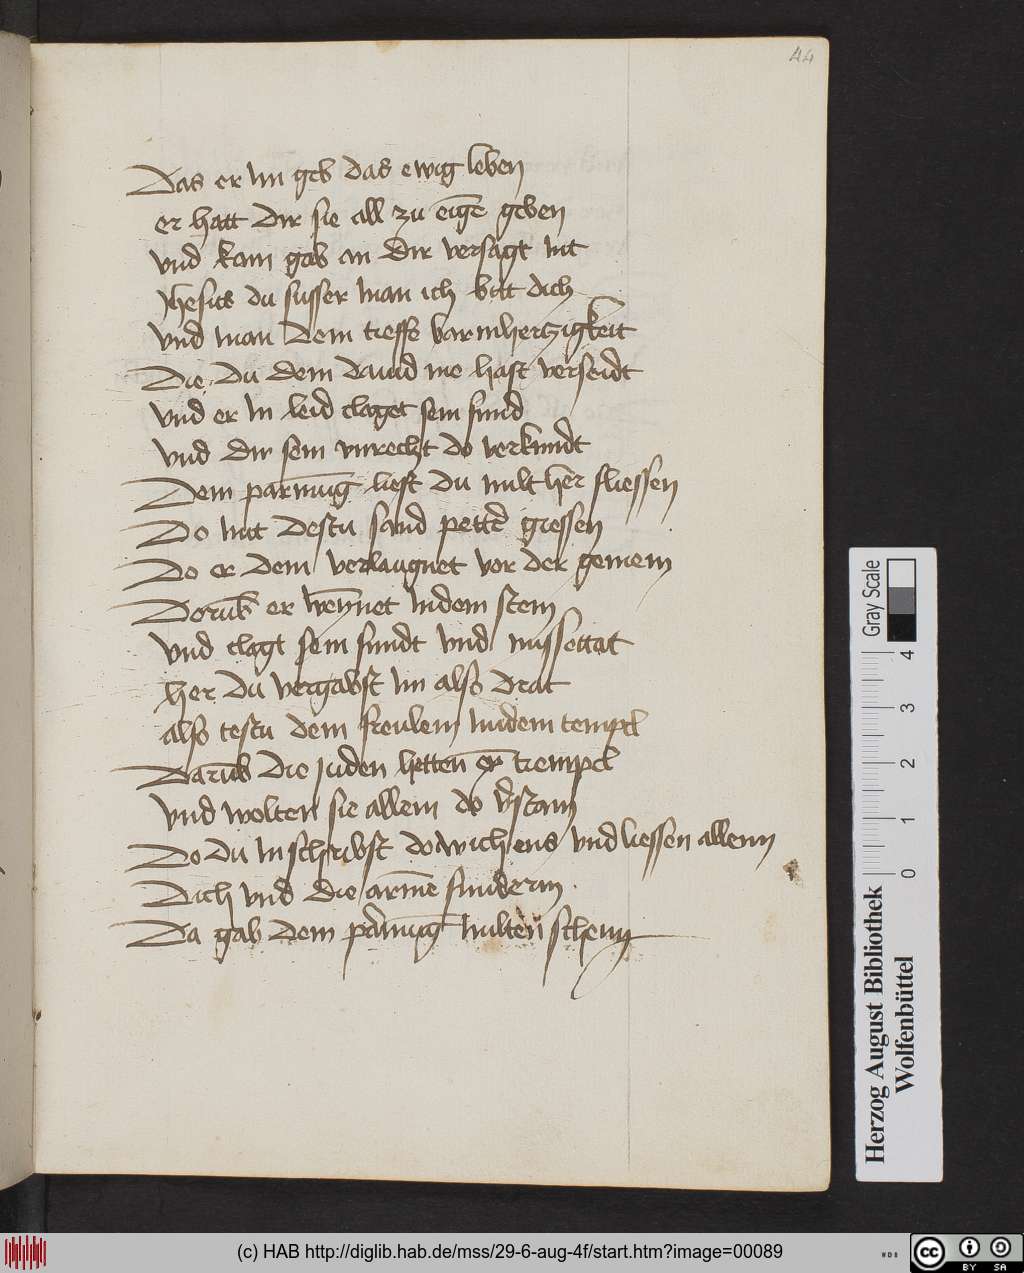 44
Das er Im geb das ewig leben
er hatt dir sie all zu eigē geben
vnd kain gab an dir versagt nit
Jhesus du susser man ich bitt dich
vnd man dein tieffe barmhertzigkeit
Die du dem dauid me hast verseidt
vnd er In leid claget sein sund
vnd dir sein vnrecht do verkundt
Dein parmūg liest du milt her fliessen
Do mit destu sand petter gressen
Do er dein verlaugnet vor der gemein
Dorūb er weynet In dem stein
vnd clagt sein sundt vnd missettat
her du vergabst Im also drat
also testu dem freulein In dem tempel
Darūb die Juden hetten er trempel
vnd wolten sie allein do vstain
Do du In schribst do wichens vnd liessen allein
Dich vnd die armē sunderin
Da gab dein parmūg milten schein
Gray Scale
4
3
2
1
0
Herzog August Bibliothek
Wolfenbüttel
(c) HAB http://diglib.hab.de/mss/29-6-aug-4f/start.htm?image=00089
WDB
cc BY SA